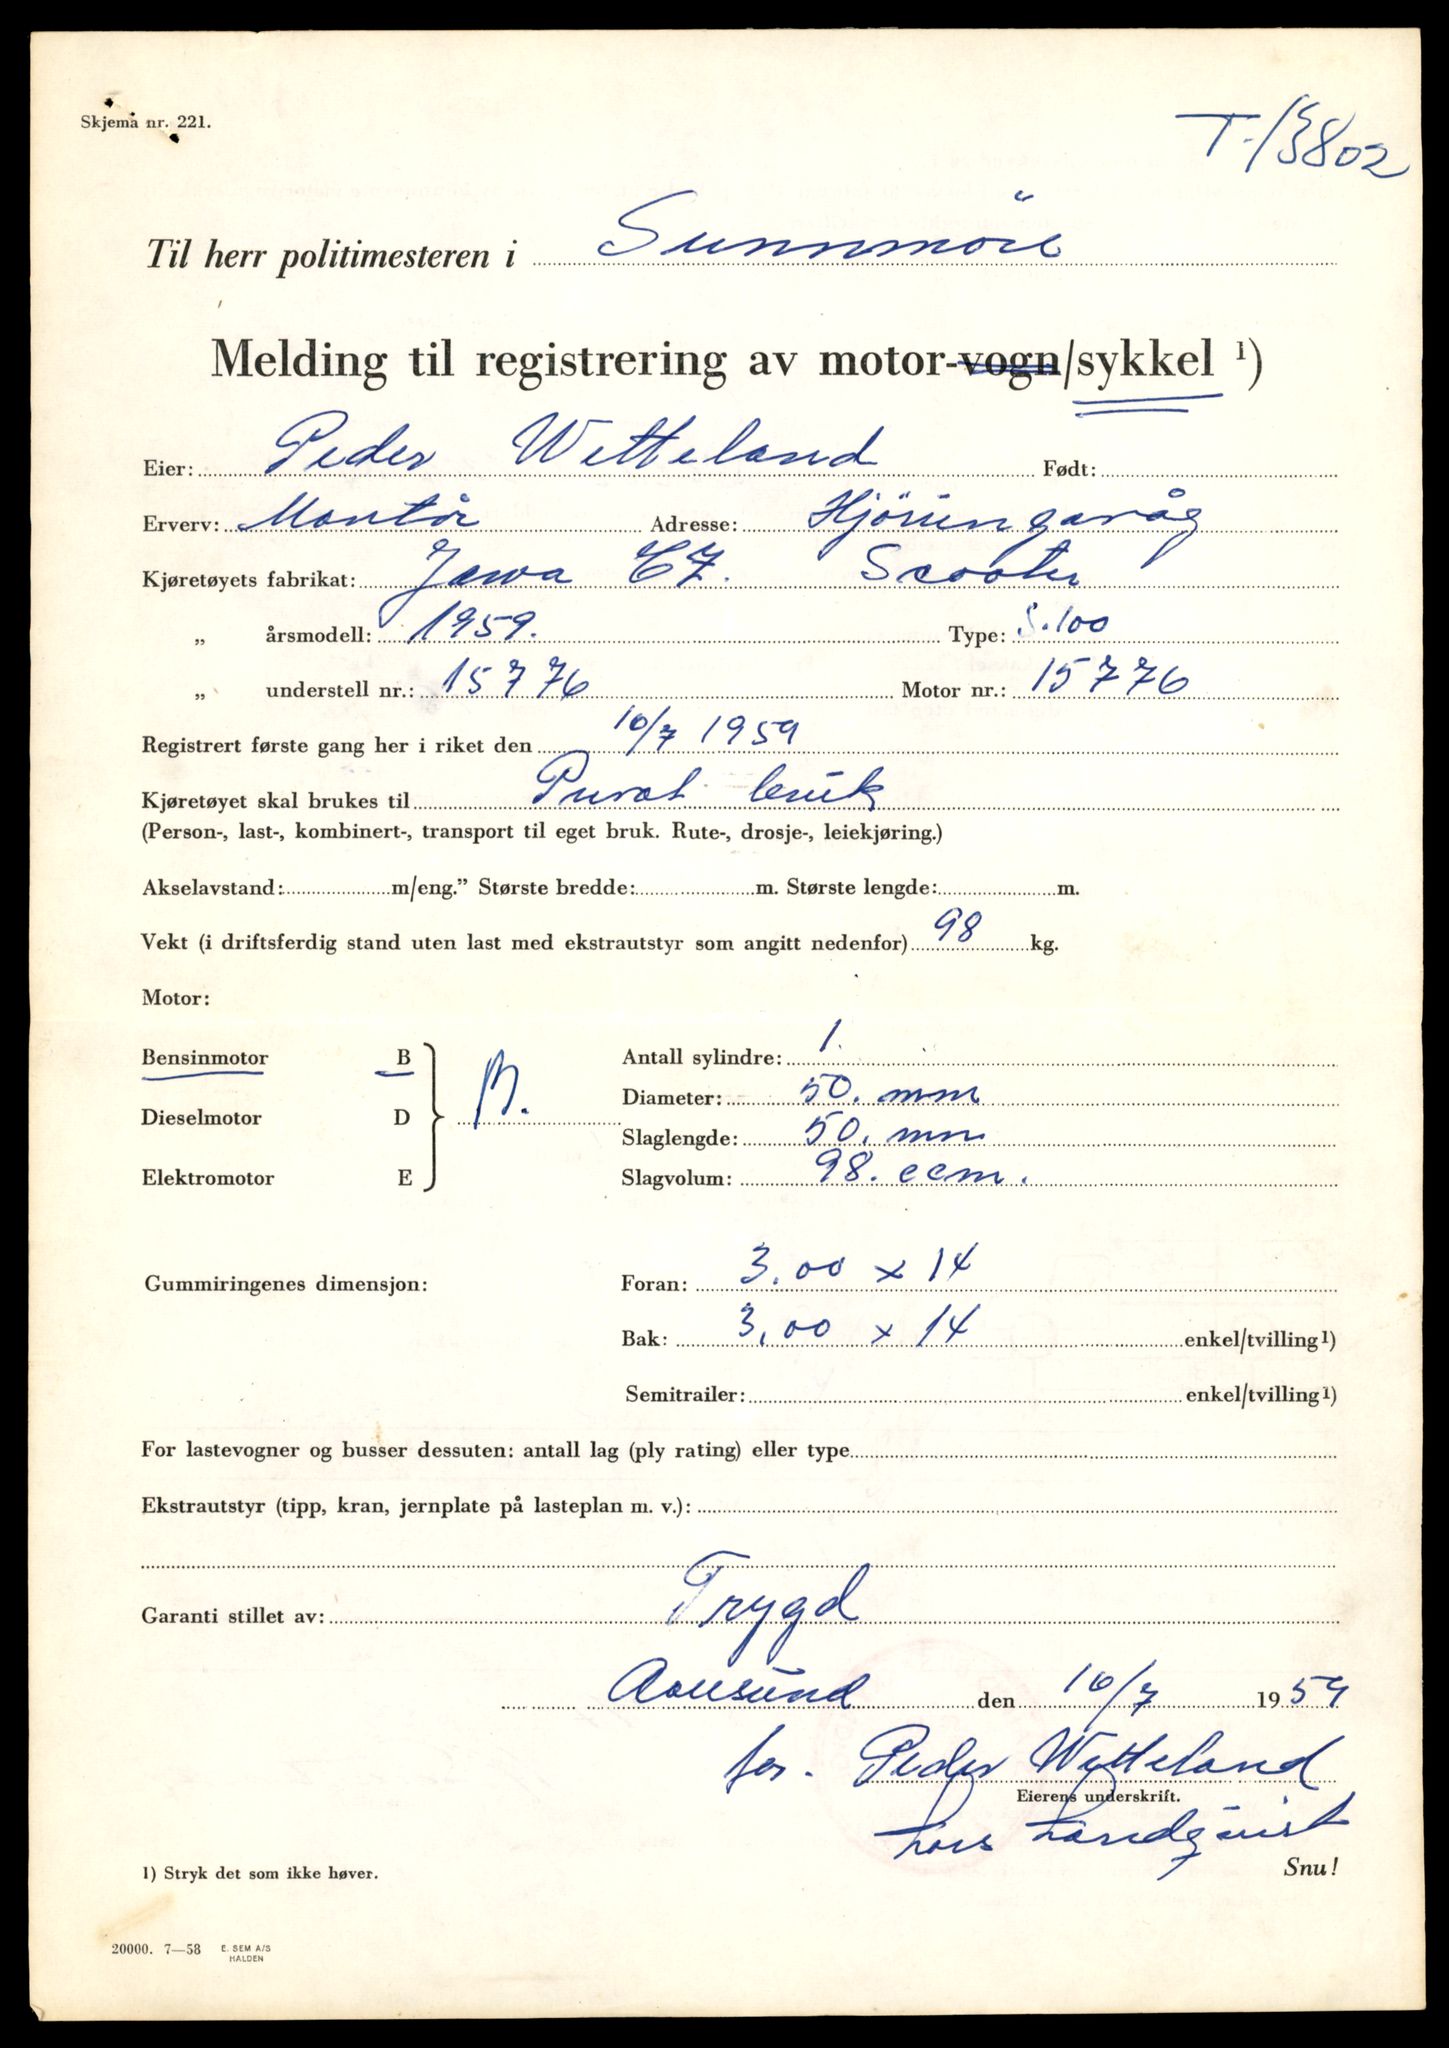 Skjema nr. 221.
T-13802
Til herr politimesteren i Sunnmöre
Melding til registrering av motor-vogn/sykkel 1)
Eier: Peder Witteland Født:
Erverv: Montör Adresse: Hjörungavåg
Kjøretøyets fabrikat: Jawa CZ. Scooter
„ årsmodell: 1959. Type: S.100
„ understell nr.: 15776 Motor nr.: 15776
Registrert første gang her i riket den 10/7 1959
Kjøretøyet skal brukes til Privat bruk
(Person-, last-, kombinert-, transport til eget bruk. Rute-, drosje-, leiekjøring.)
Akselavstand: m/eng.” Største bredde: m. Største lengde: m.
Vekt (i driftsferdig stand uten last med ekstrautstyr som angitt nedenfor) 98 kg.
Motor:
Bensinmotor B B. Antall sylindre: 1.
Diameter: 50. mm
Dieselmotor D Slaglengde: 50. mm
Elektromotor E Slagvolum: 98. ccm.
Gummiringenes dimensjon: Foran: 3.00 x 14
Bak: 3,00 x 14 enkel/tvilling 1)
Semitrailer: enkel/tvilling 1)
For lastevogner og busser dessuten: antall lag (ply rating) eller type
Ekstrautstyr (tipp, kran, jernplate på lasteplan m. v.):
Garanti stillet av: Trygd
Aalesund den 10/7 1959
for. Peder Witteland
Eierens underskrift.
Lars Landqvist
1) Stryk det som ikke høver. Snu!
20000. 7—58 E. SEM A/S
HALDEN